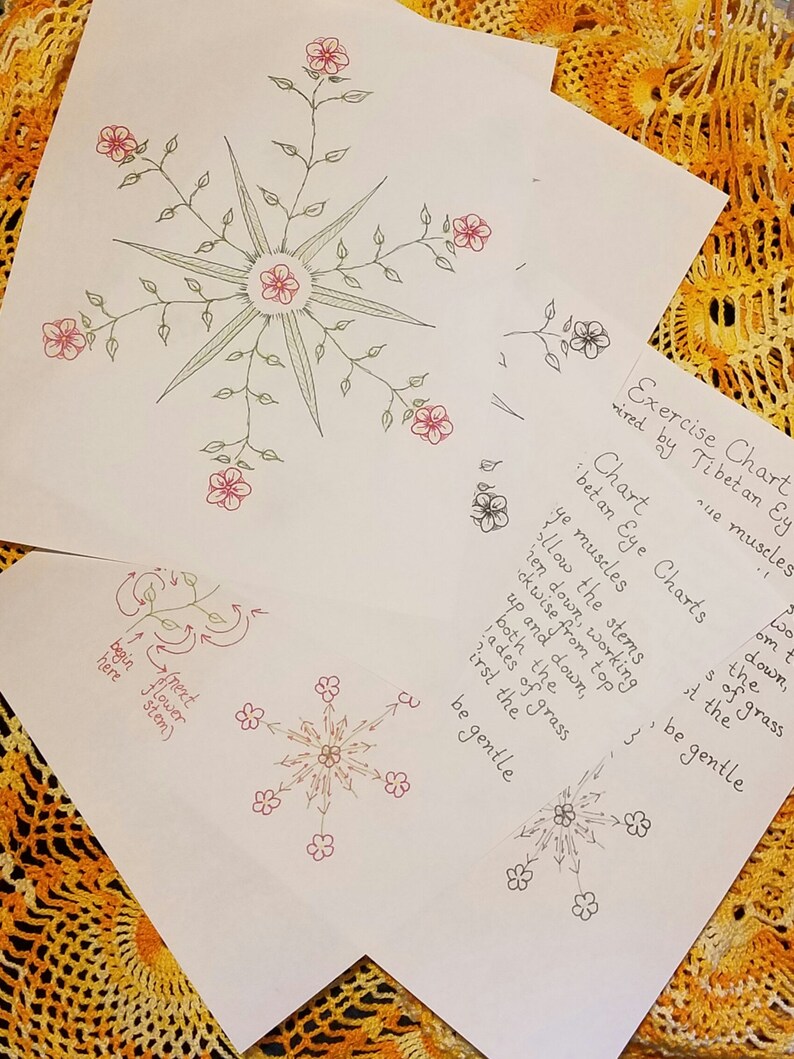 Exercise Chart
pired by Tibetan Ey
ye muscles
wo
om t
down,
the
s of grass
t the
be gentle
Chart
betan Eye Charts
ye muscles
ollow the stems
hen down, working
ckwise from top
up and down,
both the
lades of grass
irst the
be gentle
begin
here
(next
flower
stem)